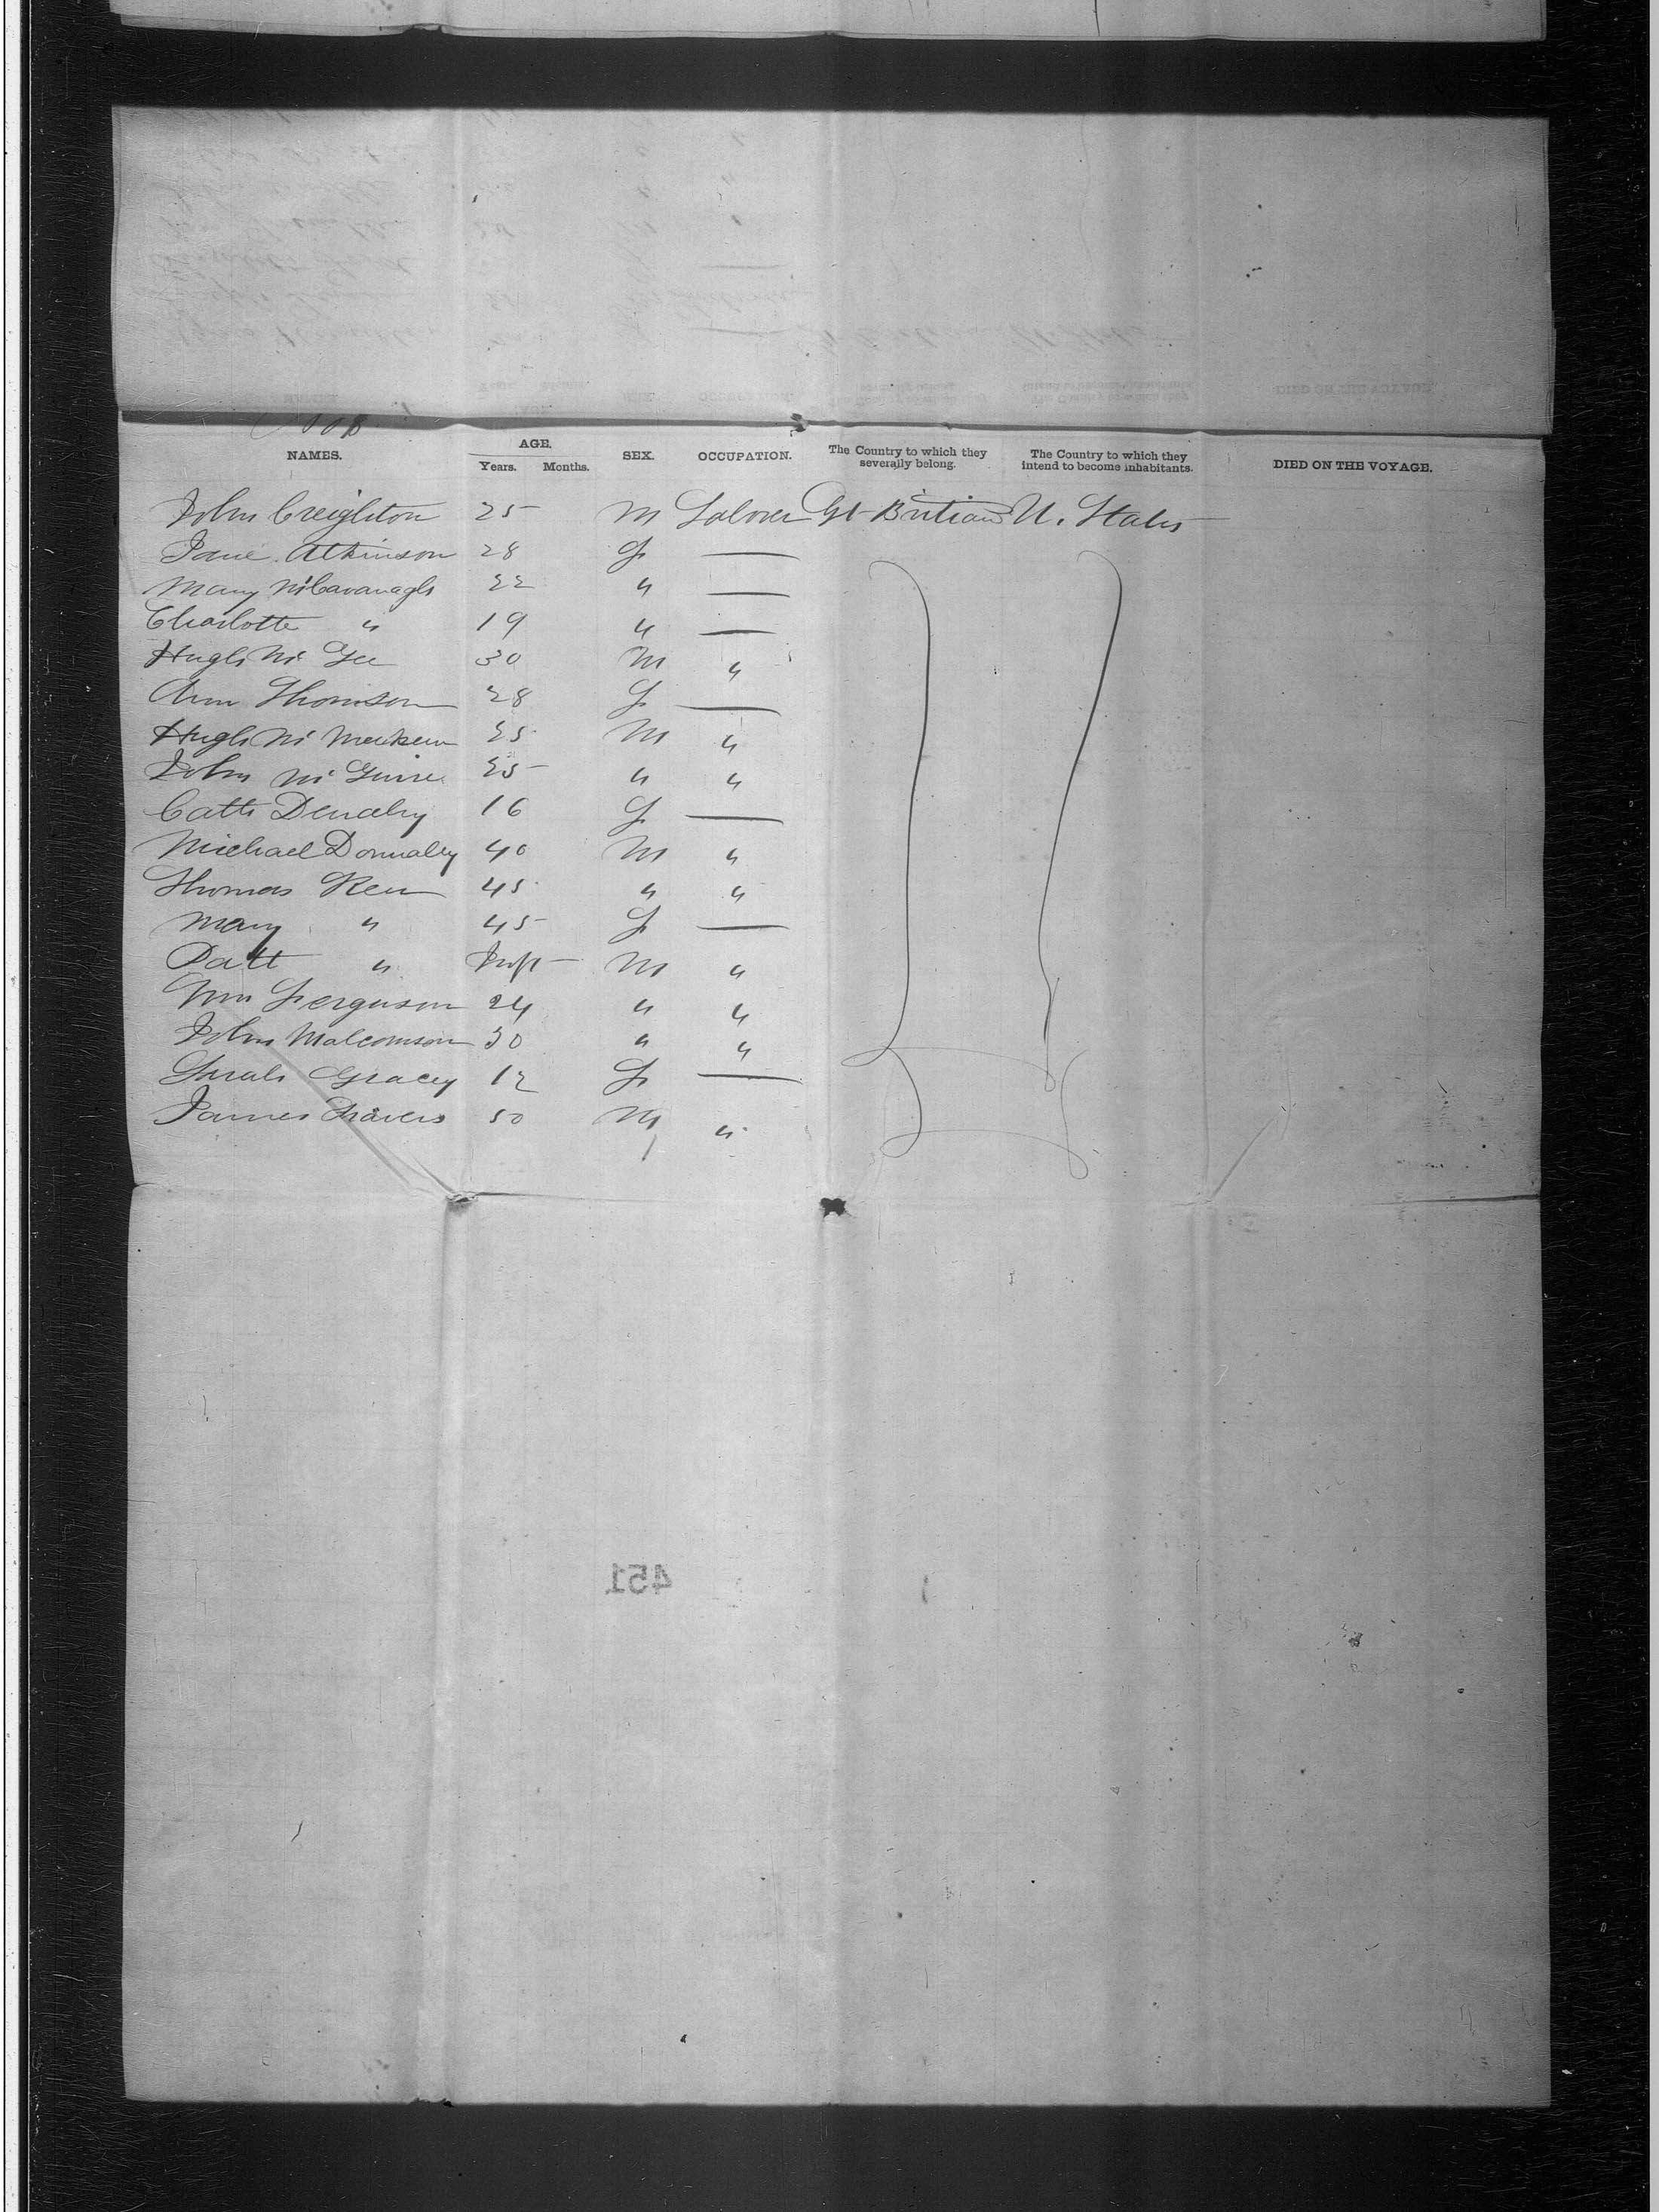 NAMES. AGE. Years. Months. SEX. OCCUPATION. The Country to which they severally belong. The Country to which they intend to become inhabitants. DIED ON THE VOYAGE.
John Creighton 25 M Labourer Gt Britian U. States
Jane Atkinson 28 F —
Mary McCavanagh 22 " —
Charlotte " 19 " —
Hugh Mc Gee 30 M "
Ann Thomson 28 F —
Hugh Mc 25 M "
John Mc Guire 25 " "
Cath Denaby 16 F —
Michael Donnally 40 M "
Thomas Ken 45 " "
Mary " 45 F —
Patt " Inft M "
Wm Ferguson 24 " "
John Malcomson 30 " "
Sarah Gracey 12 F —
James Travers 50 M "
451